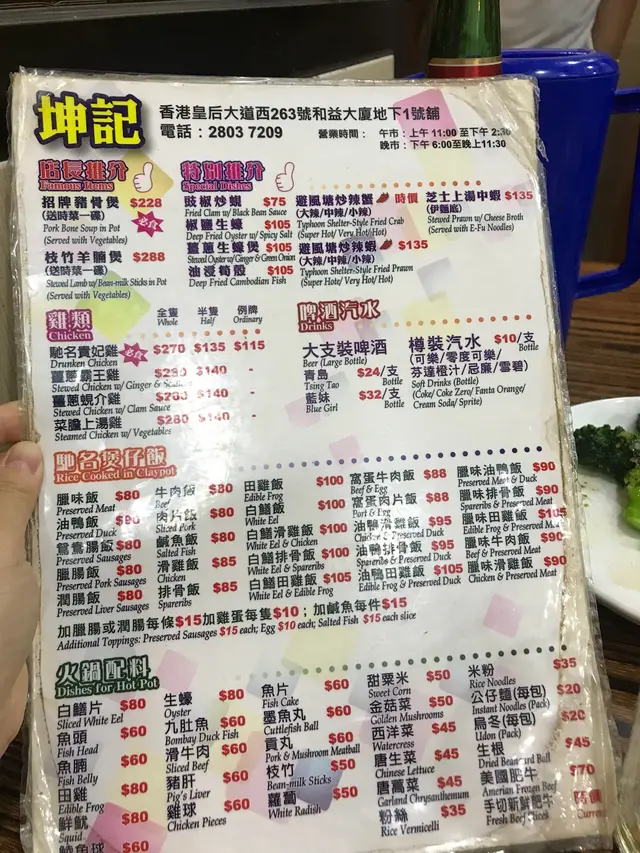 坤記
香港皇后大道西263號和益大廈地下1號舖
電話：2803 7209
營業時間： 午市：上午 11:00 至下午 2:30
晚市：下午 6:00至晚上11:30
店長推介
Famous Items
招牌豬骨煲 $228
(送時菜一碟)
必食
Pork Bone Soup in Pot
(Served with Vegetables)
枝竹羊腩煲 $288
(送時菜一碟)
Stewed Lamb w/ Bean-milk Sticks in Pot
(Served with Vegetables)
特別推介
Special Dishes
豉椒炒蜆 $75
Fried Clam w/ Black Bean Sauce
椒鹽生蠔 $105
Deep Fried Oyster w/ Spicy Salt
薑蔥生蠔煲 $105
Stewed Oyster w/ Ginger & Green Onion
油浸筍殼 $105
Deep Fried Cambodian Fish
避風塘炒辣蟹 時價
(大辣/中辣/小辣)
Typhoon Shelter-Style Fried Crab
(Super Hot/ Very Hot/ Hot)
避風塘炒辣蝦 $135
(大辣/中辣/小辣)
Typhoon Shelter-Style Fried Prawn
(Super Hot/ Very Hot/ Hot)
芝士上湯中蝦 $135
(伊麵底)
Stewed Prawn w/ Cheese Broth
(Served with E-Fu Noodles)
雞類
Chicken
全隻 半隻 例牌
Whole Half Ordinary
馳名貴妃雞 必食 $270 $135 $115
Drunken Chicken
薑蔥霸王雞 $280 $140 -
Stewed Chicken w/ Ginger &
薑蔥蜆介雞 $280 $140 -
Stewed Chicken w/ Clam Sauce
菜膽上湯雞 $280 $140 -
Steamed Chicken w/ Vegetables
啤酒汽水
Drinks
大支裝啤酒
Beer (Large Bottle)
青島 $24/支
Tsing Tao Bottle
藍妹 $32/支
Blue Girl Bottle
樽裝汽水 $10/支
Bottle
(可樂/零度可樂/
芬達橙汁/忌廉/雪碧)
Soft Drinks (Bottle)
(Coke/ Coke Zero/ Fanta Orange/
Cream Soda/ Sprite)
馳名煲仔飯
Rice Cooked in Claypot
臘味飯 $80
Preserved Meat
油鴨飯 $90
Preserved Duck
鴛鴦腸飯 $80
Preserved Sausages
臘腸飯 $80
Preserved Pork Sausages
潤腸飯 $80
Preserved Liver Sausages
牛肉飯 $80
Beef
肉片飯 $80
Sliced Pork
鹹魚飯 $80
Salted Fish
滑雞飯 $85
Chicken
排骨飯 $85
Spareribs
田雞飯 $100
Edible Frog
白鱔飯 $100
White Eel
白鱔滑雞飯 $100
White Eel & Chicken
白鱔排骨飯 $100
White Eel & Spareribs
白鱔田雞飯 $105
White Eel & Edible Frog
窩蛋牛肉飯 $88
Beef & Egg
窩蛋肉片飯 $88
Pork & Egg
油鴨滑雞飯 $95
Chicken & Preserved Duck
油鴨排骨飯 $95
Spareribs & Preserved Duck
油鴨田雞飯 $105
Edible Frog & Preserved Duck
臘味油鴨飯 $90
Preserved Meat & Duck
臘味排骨飯 $90
Spareribs & Preserved Meat
臘味田雞飯 $105
Edible Frog & Preserved Meat
臘味牛肉飯 $90
Beef & Preserved Meat
臘味滑雞飯 $90
Chicken & Preserved Meat
加臘腸或潤腸每條$15加雞蛋每隻$10；加鹹魚每件$15
Additional Toppings: Preserved Sausages $15 each; Egg $10 each; Salted Fish $15 each slice
火鍋配料
Dishes for Hot Pot
白鱔片 $80
Sliced White Eel
魚頭 $60
Fish Head
魚腩 $60
Fish Belly
田雞 $80
Edible Frog
鮮魷 $80
Squid
鯪魚球 $60
生蠔 $80
Oyster
九肚魚 $60
Bombay Duck Fish
滑牛肉 $60
Sliced Beef
豬肝 $60
Pig's Liver
雞球 $60
Chicken Pieces
魚片 $60
Fish Cake
墨魚丸 $60
Cuttlefish Ball
貢丸 $60
Pork & Mushroom Meatball
枝竹 $50
Bean-milk Sticks
蘿蔔 $50
White Radish
甜粟米 $50
Sweet Corn
金菇菜 $50
Golden Mushrooms
西洋菜 $45
Watercress
唐生菜 $45
Chinese Lettuce
唐蒿菜 $45
Garland Chrysanthemum
粉絲 $35
Rice Vermicelli
米粉 $35
Rice Noodles
公仔麵(每包) $20
Instant Noodles (Pack)
烏冬(每包) $20
Udon (Pack)
生根 $45
Dried Beancurd Ball
美國肥牛 $70
Amerian Frozen Beef
手切新鮮肥牛 時價
Fresh Beef Slices